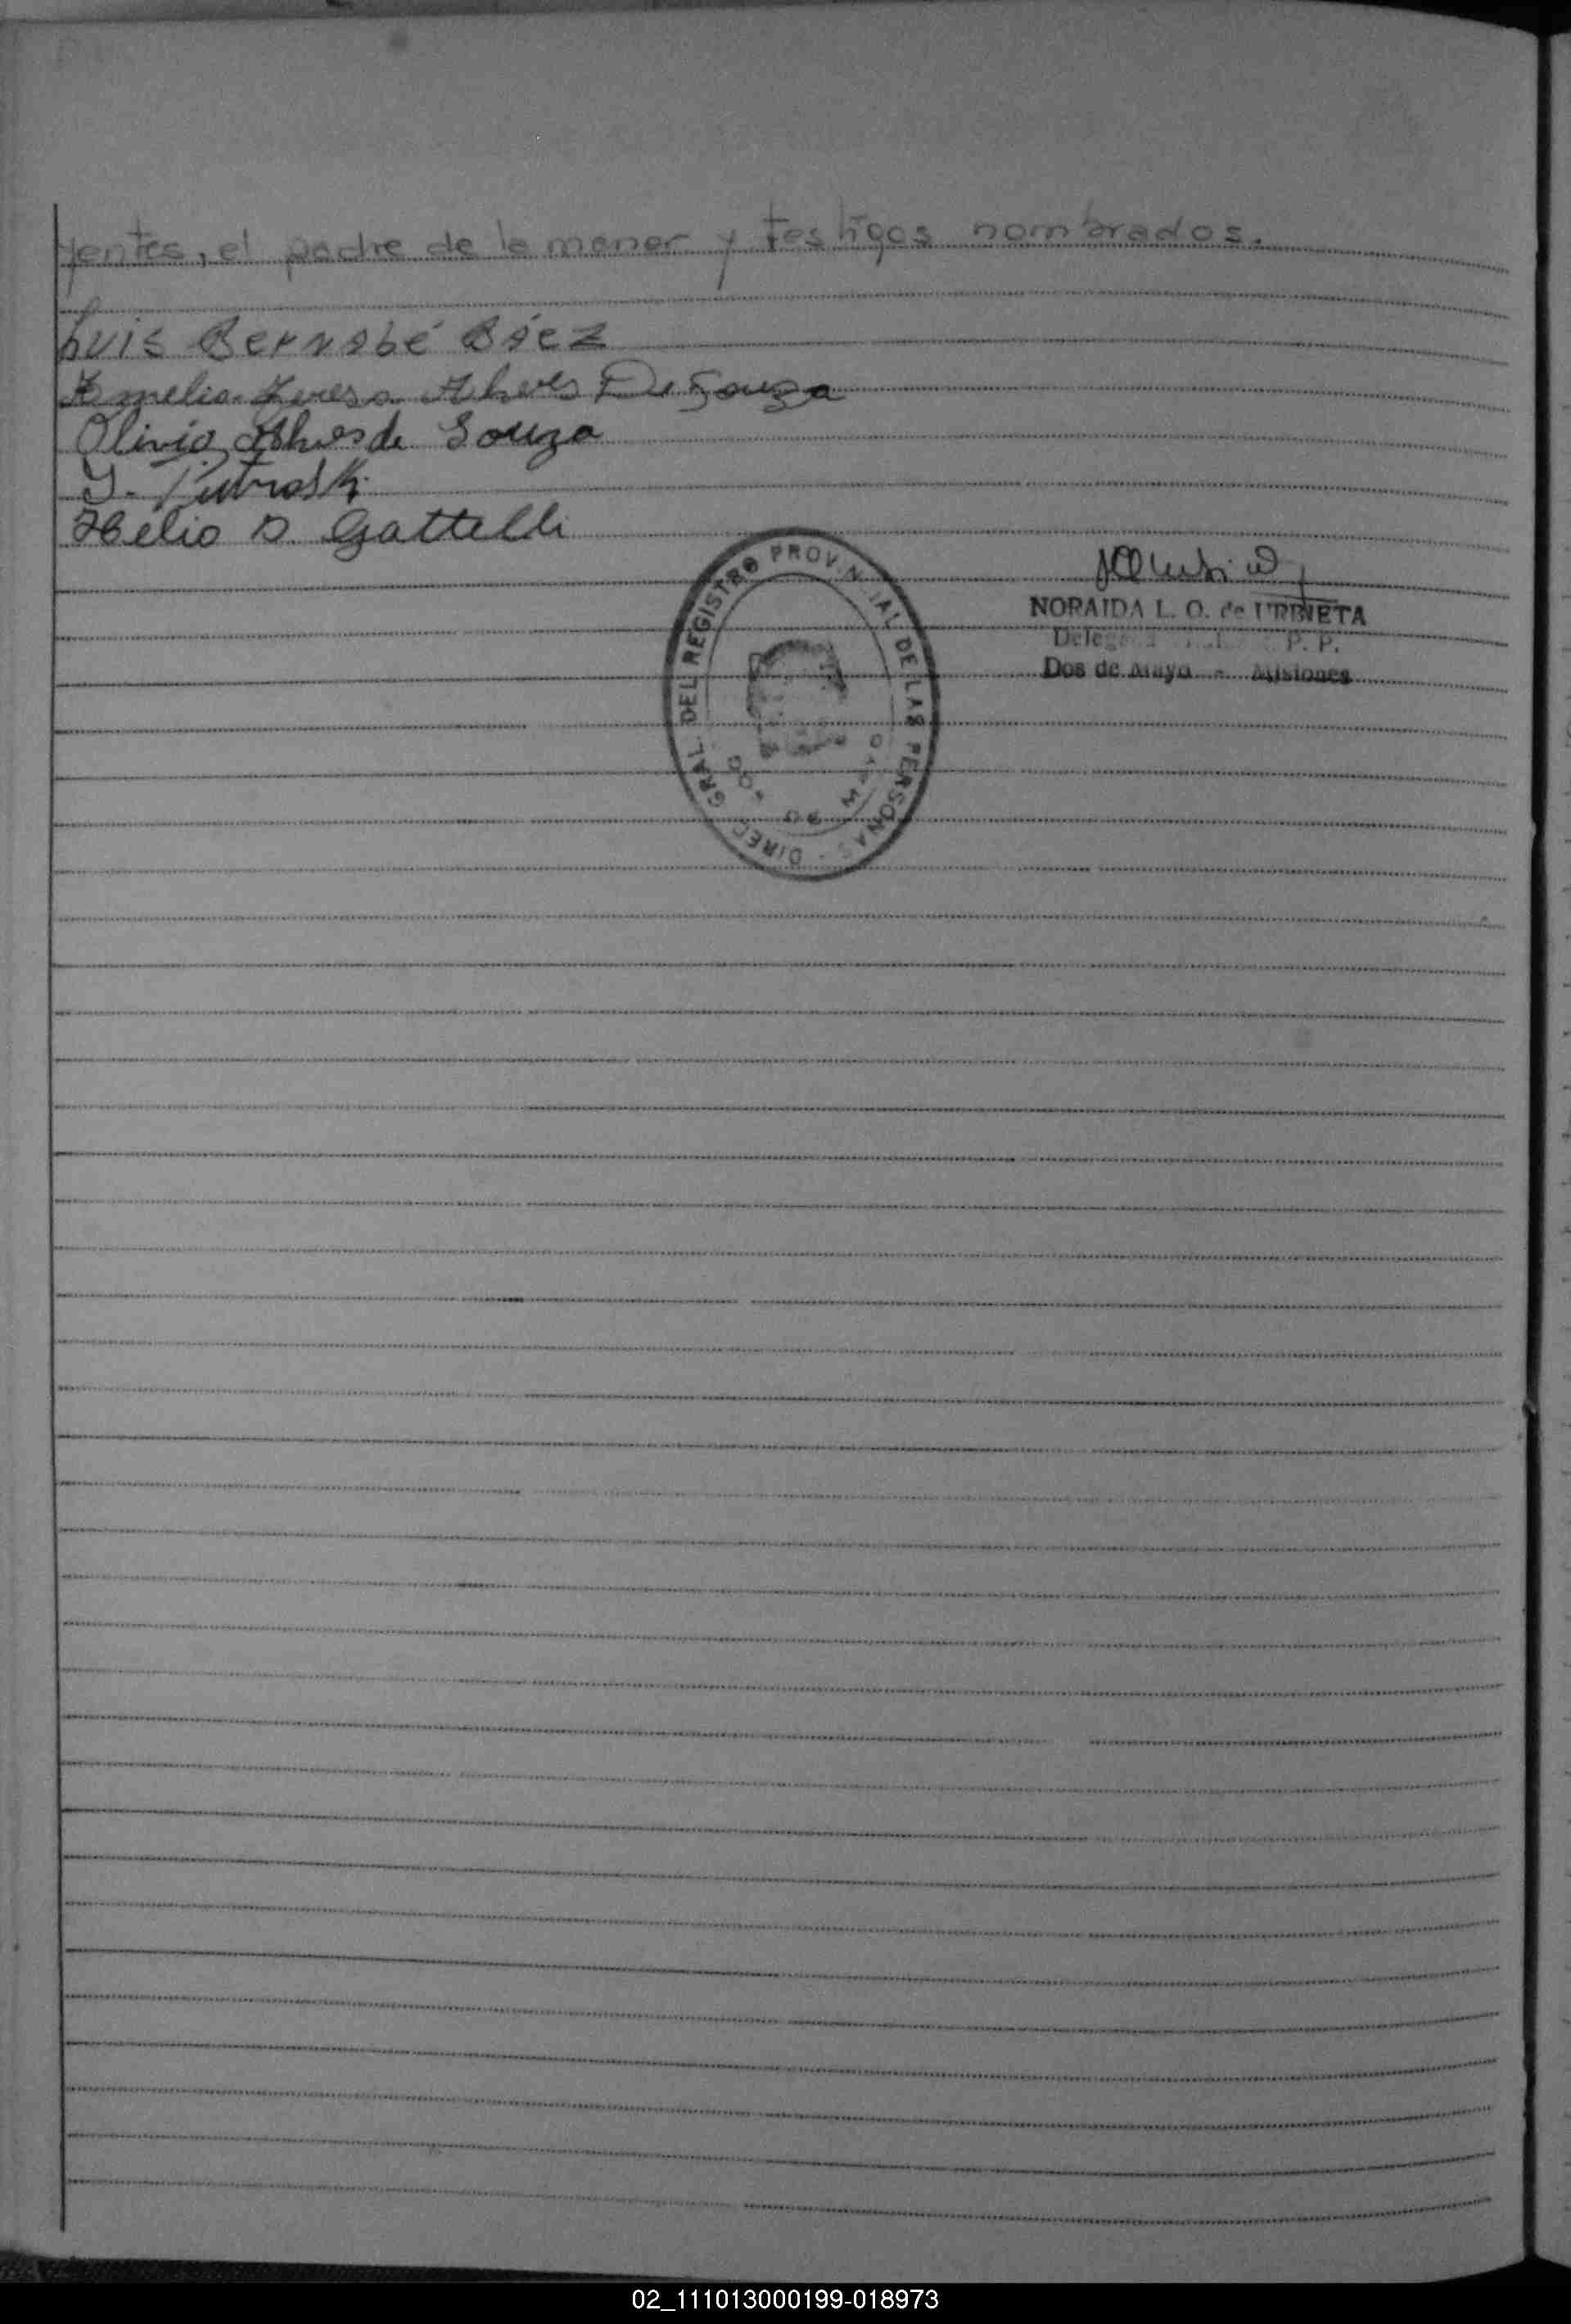 yentes, el padre de la menor y testigos nombrados.
Luis Bernabé Báez
Amelia Teresa Alves De Souza
Olivio Alves de Souza
Helio D. Gattelli
NORAIDA L. O. de URBIETA
P. P.
Dos de Mayo - Misiones
DIREC. GRAL. DEL REGISTRO PROVINCIAL DE LAS PERSONAS
02_111013000199-018973